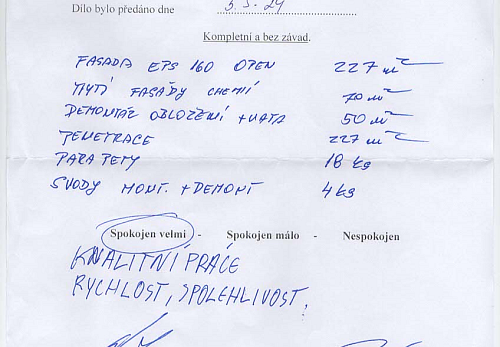 Dílo bylo předáno dne 5.5.24
Kompletní a bez závad.
FASADA EPS 160 OTEN 227 m2
MYTÍ FASÁDY CHEMIÍ 70 m2
DEMONTÁŽ OBLOŽENÍ + VATA 50 m2
PENETRACE 227 m2
PARAPETY 18 kg
SVODY MONT. + DEMONT 4 kg
Spokojen velmi - Spokojen málo - Nespokojen
KVALITNÍ PRÁCE
RYCHLOST, SPOLEHLIVOST.